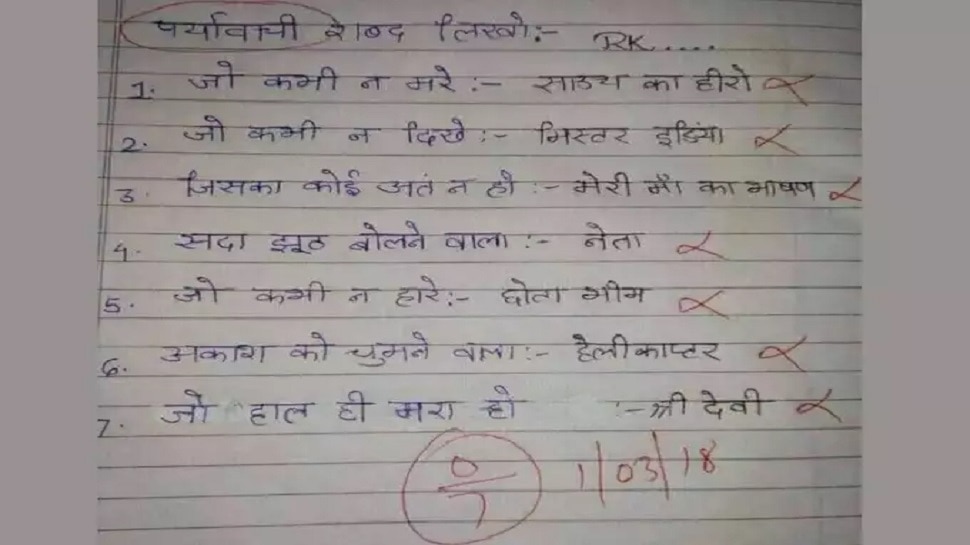 पर्यावाची शब्द लिखो:- RK.....
1. जो कभी न मरे :- साउथ का हीरो
2. जो कभी न दिखे :- मिस्टर इडिंया
3. जिसका कोई अतं न हो :- मेरी माँ का भाषण
4. सदा झूठ बोलने वाला :- नेता
5. जो कभी न हारे:- छोता भीम
6. अकाश को चुमने वाला:- हेलीकाप्टर
7. जो हाल ही मरा हो :- श्री देवी
0/7 1/03/18